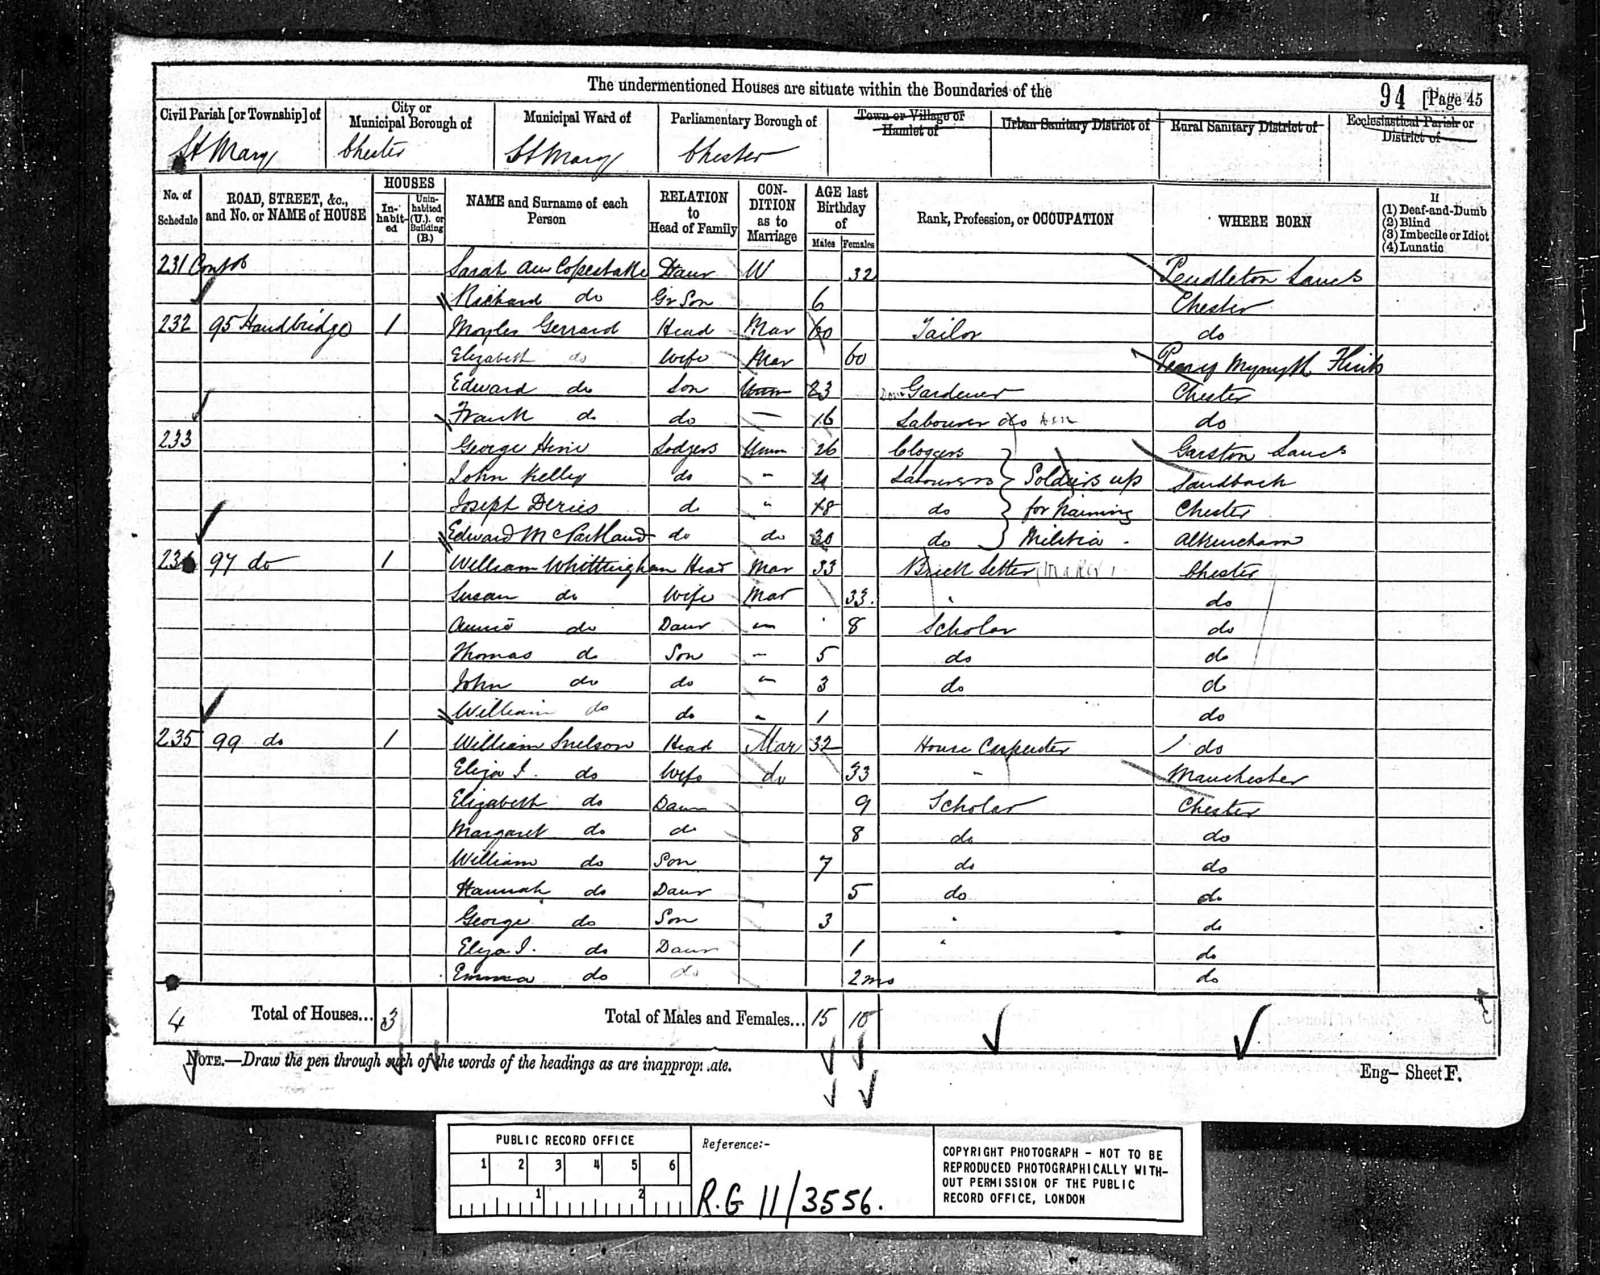 The undermentioned Houses are situate within the Boundaries of the
94 [Page 45
Civil Parish [or Township] of
City or Municipal Borough of
Municipal Ward of
Parliamentary Borough of
Town or Village or Hamlet of
Urban Sanitary District of
Rural Sanitary District of
Ecclesiastical Parish or District of
St Mary Chester St Mary Chester
No. of Schedule
ROAD, STREET, &c., and No. or NAME of HOUSE
HOUSES
In-habit-ed
Unin-habited (U.). or Building (B.)
NAME and Surname of each Person
RELATION to Head of Family
CON-DITION as to Marriage
AGE last Birthday of
Males Females
Rank, Profession, or OCCUPATION
WHERE BORN
If
(1) Deaf-and-Dumb
(2) Blind
(3) Imbecile or Idiot
(4) Lunatic
231 Sarah Ann Copestake Daur W 32 Pendleton Lancs
Richard do Gr Son 6 Chester
232 95 Handbridge 1 Gerrard Head Mar 60 Tailor do
Elizabeth do Wife Mar 60 Flints
Edward do Son Unm 23 Gardener Chester
Frank do do — 16 Labourer do do
233 George Lodgers Unm 26 Cloggers Garston Lancs
John Kelly do - Labourers Soldiers up Sandbach
Joseph do " 18 do for training Chester
Edward McPartland do do 30 do Militia - Altrincham
234 97 do 1 William Whittingham Head Mar 33 Brick Setter Chester
Susan do Wife Mar 33. do
Annie do Daur 8 Scholar do
Thomas do Son - 5 do do
John do do 3 do do
William do do 1 do
235 99 do 1 William Snelson Head Mar 32 House Carpenter do
Eliza J. do Wife do 33 - Manchester
Elizabeth do Daur 9 Scholar Chester
Margaret do do 8 do do
William do Son 7 do do
Hannah do Daur 5 do do
George do Son 3 " do
Eliza J. do Daur 1 " do
Emma do do 2mo do
4 Total of Houses... 3 Total of Males and Females... 15 10
NOTE.—Draw the pen through such of the words of the headings as are inappropriate.
Eng— Sheet F.
PUBLIC RECORD OFFICE
1 2 3 4 5 6
1 2
Reference:-
R.G 11/3556.
COPYRIGHT PHOTOGRAPH - NOT TO BE
REPRODUCED PHOTOGRAPHICALLY WITH-
OUT PERMISSION OF THE PUBLIC
RECORD OFFICE, LONDON